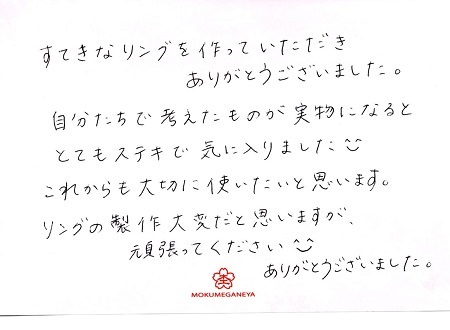 すてきなリングを作っていただき
ありがとうございました。
自分たちで考えたものが実物になると
とてもステキで気に入りました
これからも大切に使いたいと思います。
リングの製作大変だと思いますが、
頑張ってください
ありがとうございました。
MOKUMEGANEYA